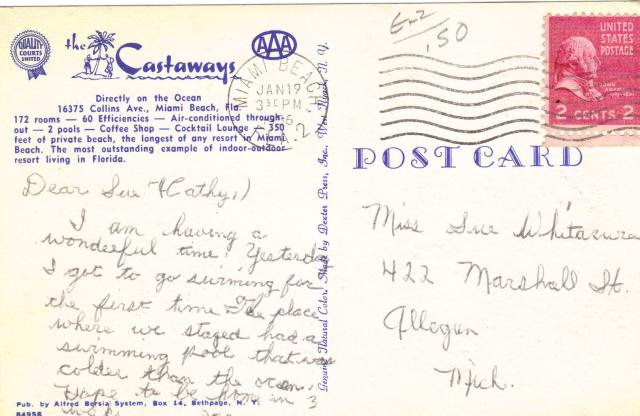 QUALITY
COURTS
UNITED
the Castaways
AAA
Directly on the Ocean
16375 Collins Ave., Miami Beach, Fla.
172 rooms — 60 Efficiencies — Air-conditioned through-
out — 2 pools — Coffee Shop — Cocktail Lounge — 350
feet of private beach, the longest of any resort in Miami
Beach. The most outstanding example of indoor-outdoor
resort living in Florida.
Dear Sue & Cathy,)
I am having a
wonderful time. Yesterday
I got to go swiming for
the first time The place
where we stayed had a
swimming pool that was
colder than the ocean.
Hope to be home in 3
Pub. by Alfred Bersia System, Box 14, Bethpage, N. Y.
84958
Genuine Natural Color, Made by Dexter Press, Inc., West Nyack, N. Y.
MIAMI BEACH
JAN 19
3 30 PM
.50
UNITED
STATES
POSTAGE
JOHN
ADAMS
2 CENTS 2
POST CARD
Miss Sue
422 Marshall St.
Allegan
Mich.